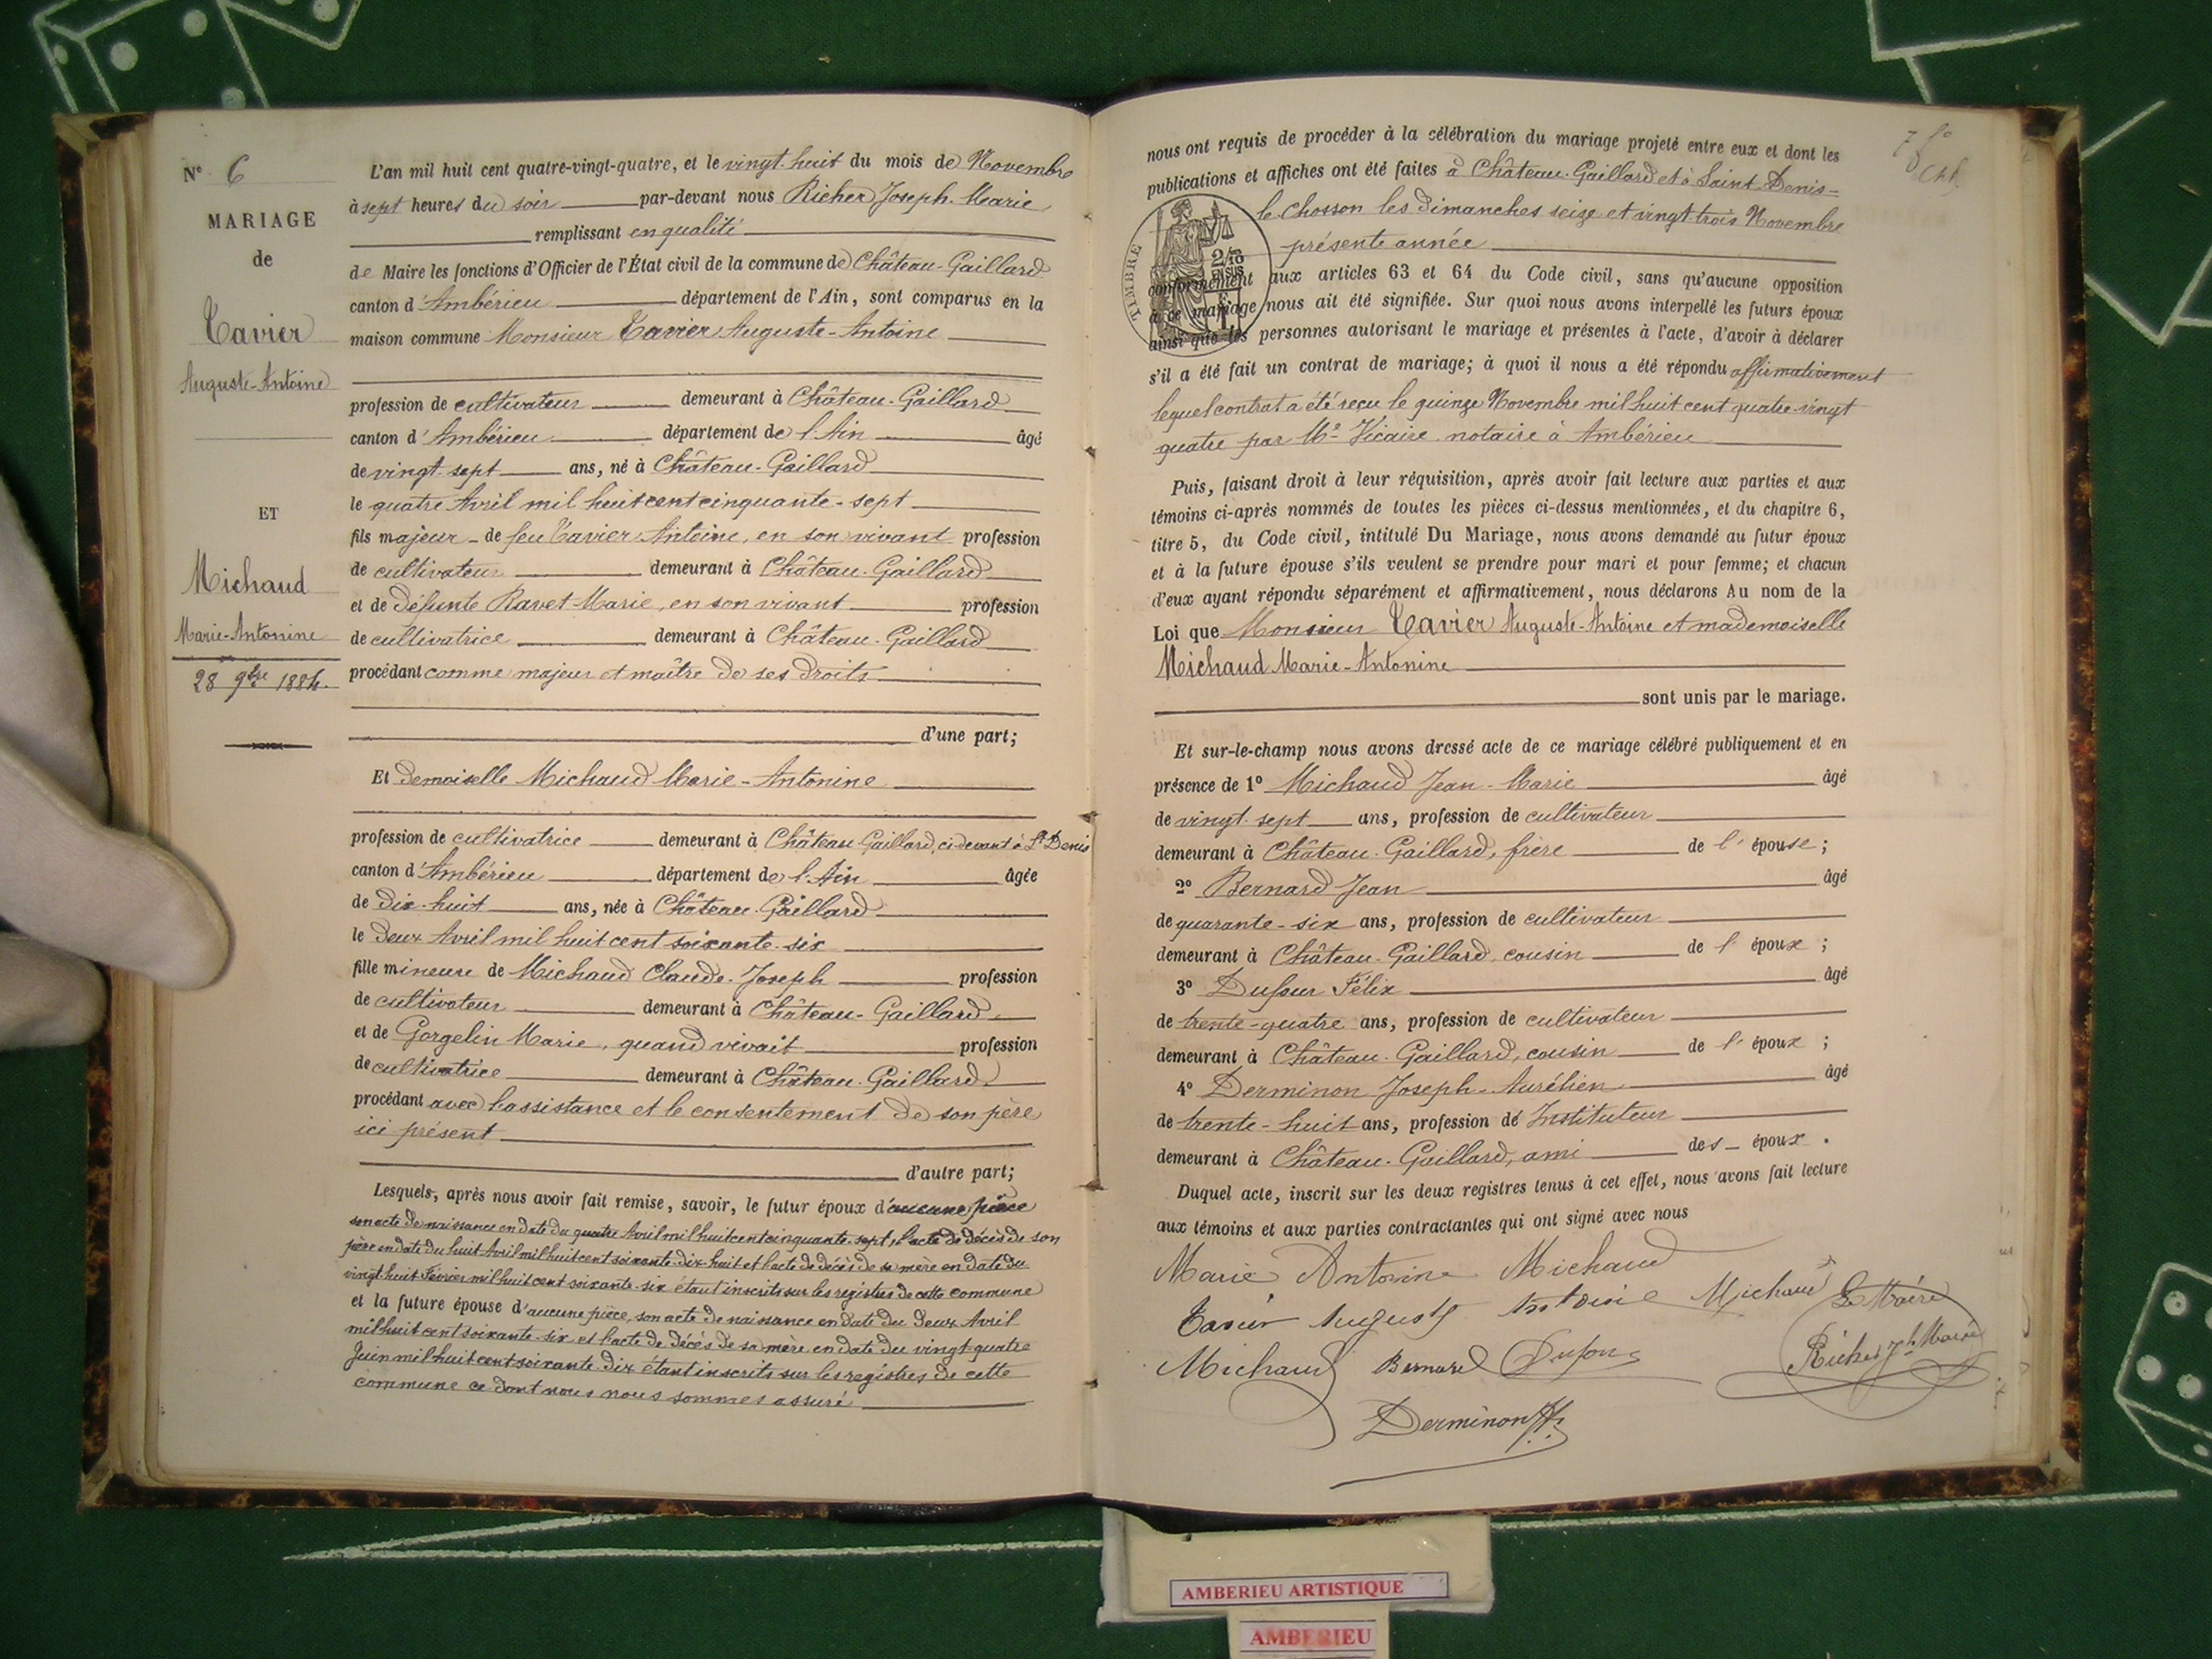 N° 6
MARIAGE
de
Tavier
Auguste-Antoine
ET
Michaud
Marie-Antonine
28 9bre 1884.
L'an mil huit cent quatre-vingt-quatre, et le vingt-huit du mois de Novembre
à sept heures du soir par-devant nous Richer Joseph-Marie
remplissant en qualité
de Maire les fonctions d'Officier de l'État civil de la commune de Château-Gaillard
canton d'Ambérieu département de l'Ain, sont comparus en la
maison commune Monsieur Tavier Auguste-Antoine
profession de cultivateur demeurant à Château-Gaillard
canton d'Ambérieu département de l'Ain âgé
de vingt-sept ans, né à Château-Gaillard
le quatre Avril mil huit cent cinquante-sept
fils majeur de feu Tavier Antoine, en son vivant profession
de cultivateur demeurant à Château-Gaillard
et de défunte Ravet Marie, en son vivant profession
de cultivatrice demeurant à Château-Gaillard
procédant comme majeur et maître de ses droits
d'une part;
Et demoiselle Michaud Marie-Antonine
profession de cultivatrice demeurant à Château-Gaillard, ci-devant à St Denis
canton d'Ambérieu département de l'Ain âgée
de dix-huit ans, née à Château-Gaillard
le deux Avril mil huit cent soixante-six
fille mineure de Michaud Claude-Joseph profession
de cultivateur demeurant à Château-Gaillard
et de Gorgelin Marie, quand vivait profession
de cultivatrice demeurant à Château-Gaillard
procédant avec l'assistance et le consentement de son père
ici présent
d'autre part;
Lesquels, après nous avoir fait remise, savoir, le futur époux d'aucune pièce
son acte de naissance en date du quatre Avril mil huit cent cinquante-sept, l'acte de décès de son
père en date du huit Avril mil huit cent soixante-dix-huit et l'acte de décès de sa mère en date du
vingt-huit Février mil huit cent soixante-six étant inscrits sur les registres de cette commune
et la future épouse d'aucune pièce, son acte de naissance en date du deux Avril
mil huit cent soixante-six et l'acte de décès de sa mère en date du vingt-quatre
Juin mil huit cent soixante-dix étant inscrits sur les registres de cette
commune ce dont nous nous sommes assuré
nous ont requis de procéder à la célébration du mariage projeté entre eux et dont les
publications et affiches ont été faites à Château-Gaillard et à Saint-Denis-
le-Chosson les dimanches seize et vingt trois Novembre
présente année
TIMBRE
2/10
EN SUS
conformément aux articles 63 et 64 du Code civil, sans qu'aucune opposition
à ce mariage nous ait été signifiée. Sur quoi nous avons interpellé les futurs époux
ainsi que les personnes autorisant le mariage et présentes à l'acte, d'avoir à déclarer
s'il a été fait un contrat de mariage; à quoi il nous a été répondu affirmativement
lequel contrat a été reçu le quinze Novembre mil huit cent quatre-vingt
quatre par Me Vicaire notaire à Ambérieu
Puis, faisant droit à leur réquisition, après avoir fait lecture aux parties et aux
témoins ci-après nommés de toutes les pièces ci-dessus mentionnées, et du chapitre 6,
titre 5, du Code civil, intitulé Du Mariage, nous avons demandé au futur époux
et à la future épouse s'ils veulent se prendre pour mari et pour femme; et chacun
d'eux ayant répondu séparément et affirmativement, nous déclarons Au nom de la
Loi que Monsieur Tavier Auguste-Antoine et mademoiselle
Michaud Marie-Antonine
sont unis par le mariage.
Et sur-le-champ nous avons dressé acte de ce mariage célébré publiquement et en
présence de 1° Michaud Jean-Marie âgé
de vingt-sept ans, profession de cultivateur
demeurant à Château-Gaillard, frère de l'épouse;
2° Bernard Jean âgé
de quarante-six ans, profession de cultivateur
demeurant à Château-Gaillard, cousin de l'époux;
3° Dufour Félix âgé
de trente-quatre ans, profession de cultivateur
demeurant à Château-Gaillard, cousin de l'époux;
4° Derminon Joseph-Aurélien âgé
de trente-huit ans, profession de Instituteur
demeurant à Château-Gaillard, ami des époux.
Duquel acte, inscrit sur les deux registres tenus à cet effet, nous avons fait lecture
aux témoins et aux parties contractantes qui ont signé avec nous
Marie Antonine Michaud
Tavier Auguste Antoine Michaud Le Maire
Michaud Bernard Dufour Richer Jh Marie
Derminon
AMBERIEU ARTISTIQUE
AMBERIEU